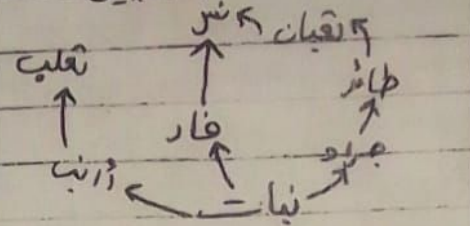 نسر ثعبان
ثعلب
طائر
فار
أرنب
جراد
نبات